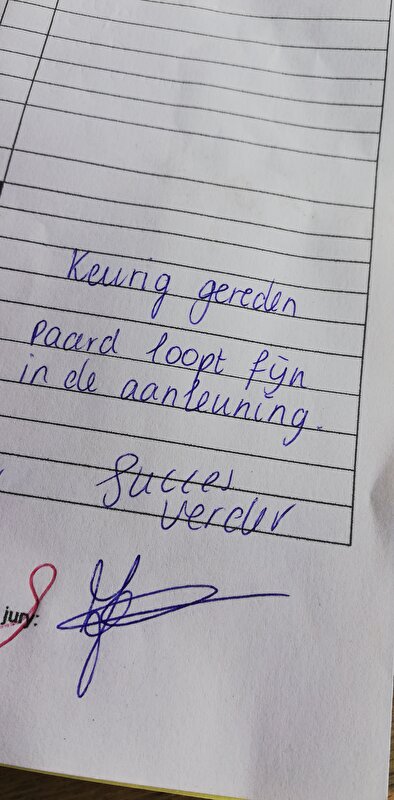 Keurig gereden
paard loopt fijn
in de aanleuning.
Succes
verder
jury: